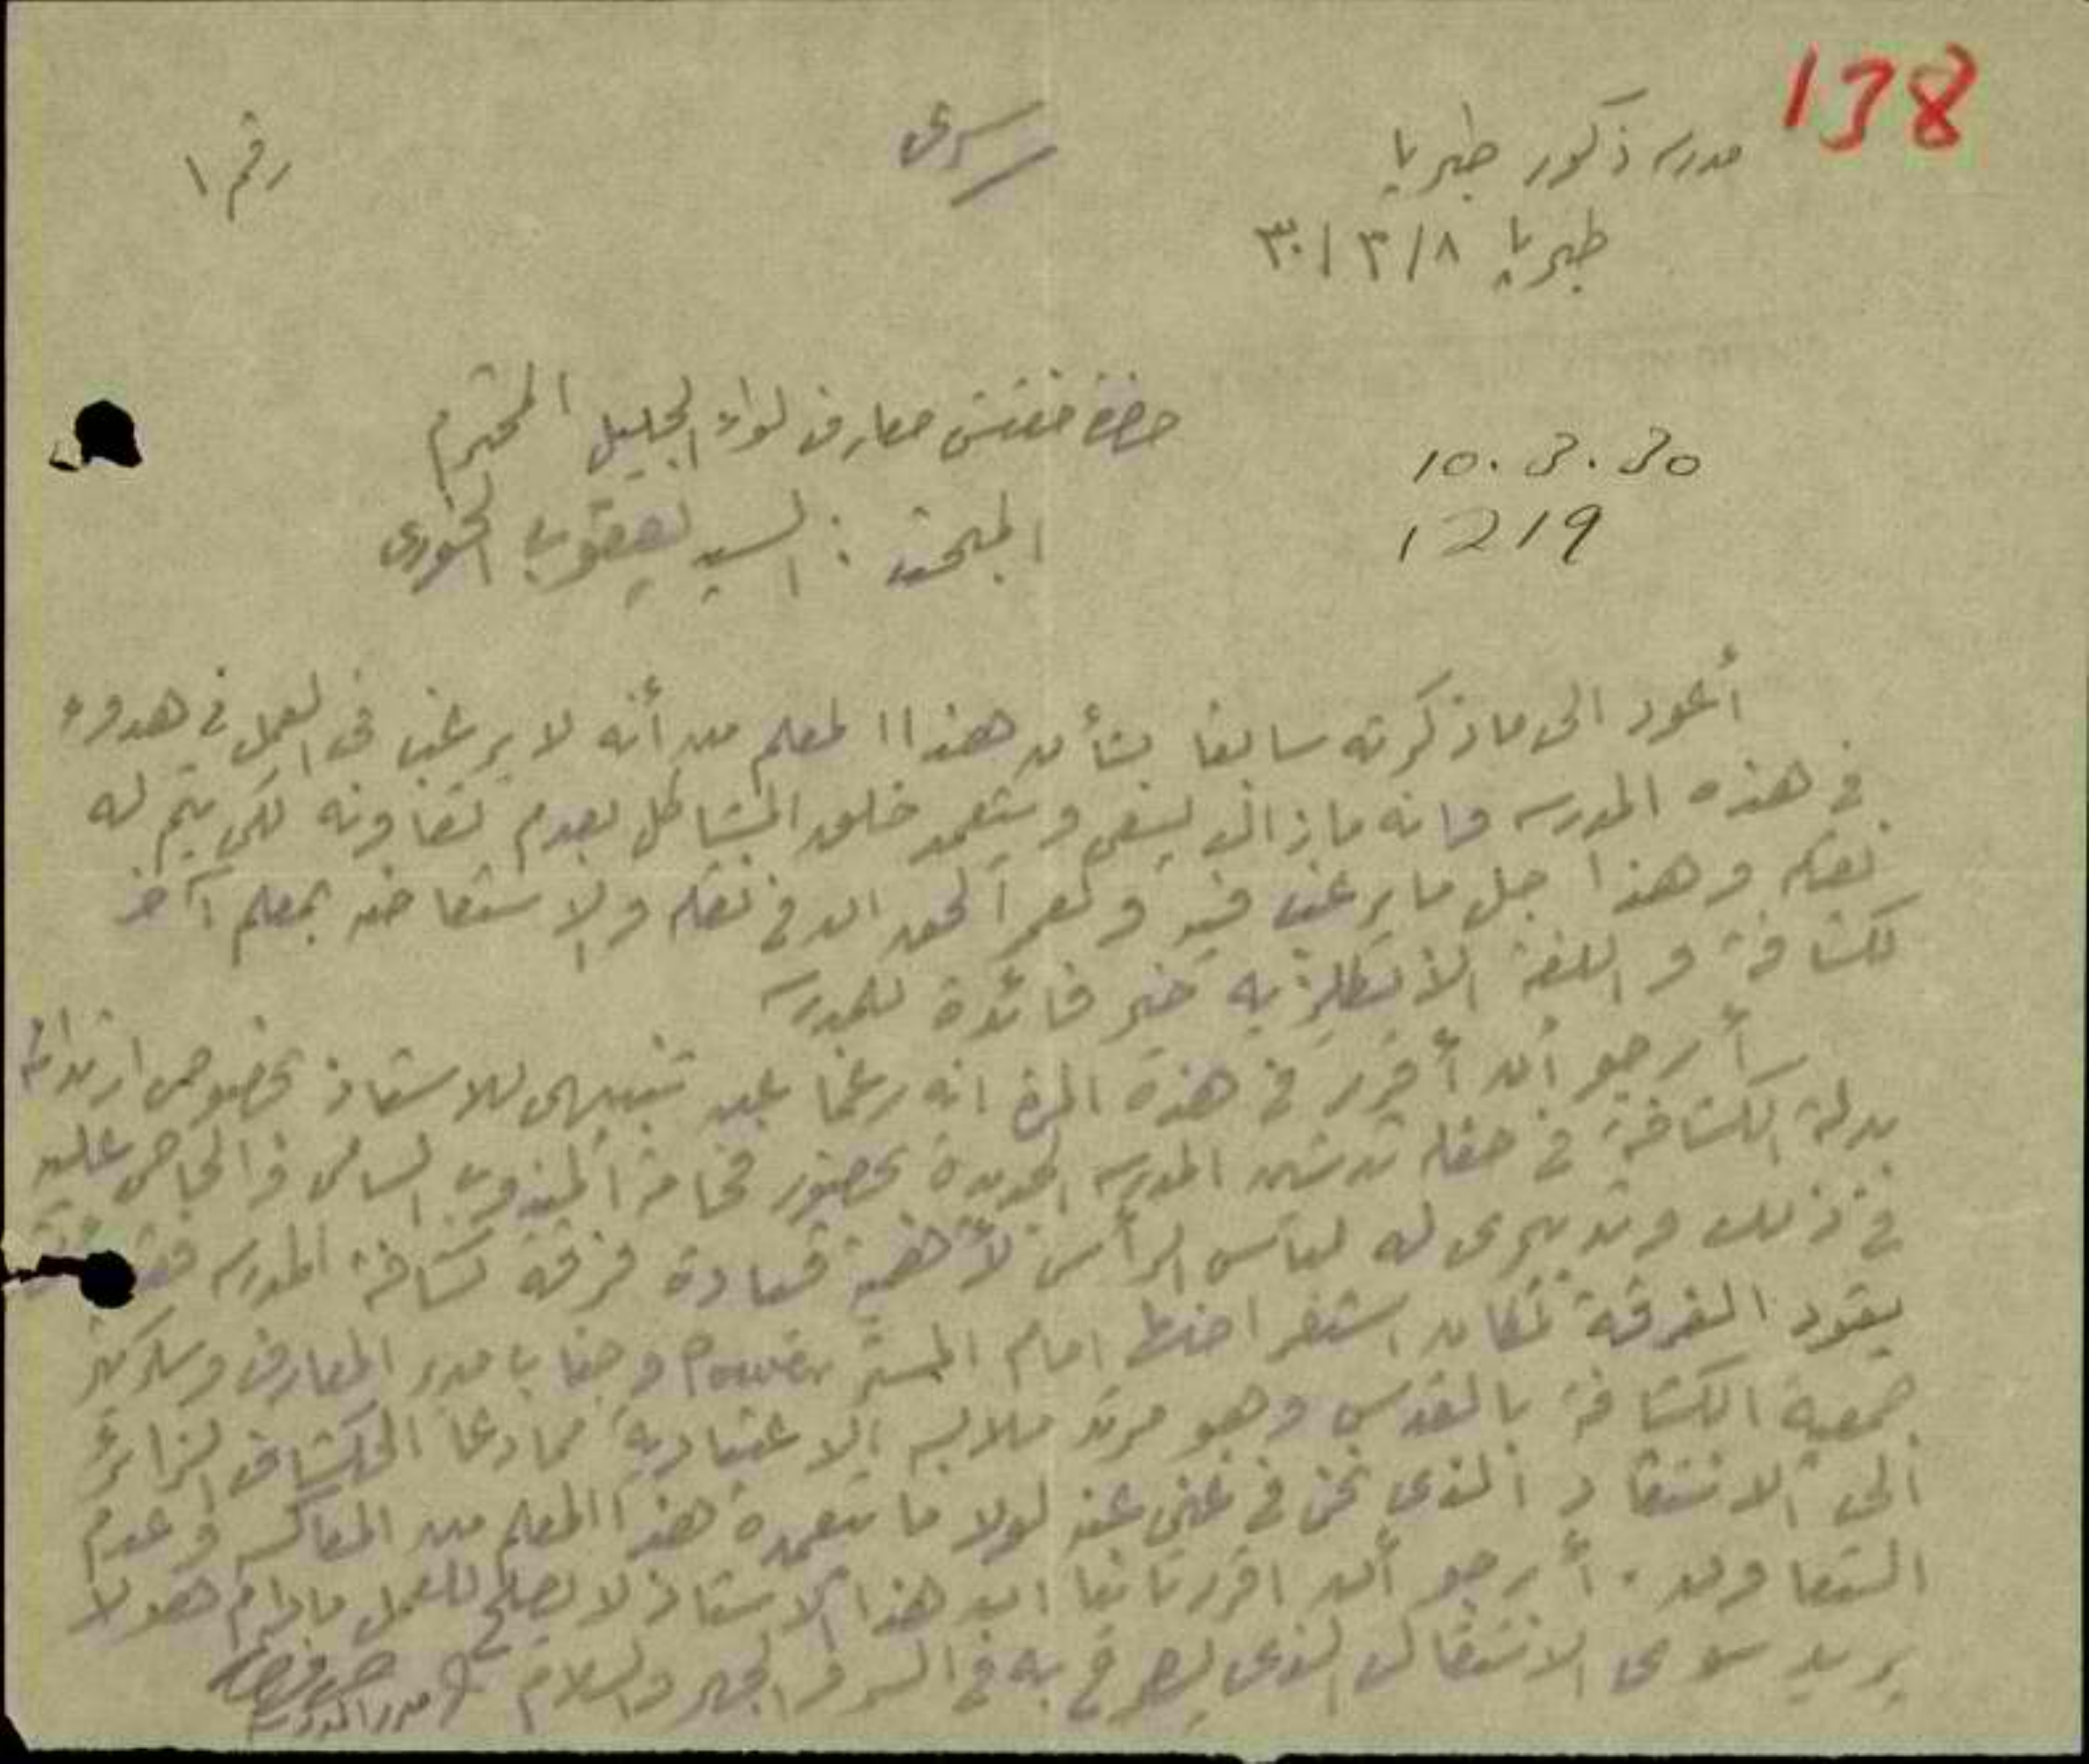 138
مدرسة ذكور طبريا
سري
رقم ١
طبريا ٨/٣/٣٠
حضرة مفتش معارف لواء الجليل المحترم
10.3.30
المبحث : السيد يعقوب الخوري
1219
أعود الى ما ذكرته سابقا بشأن هذا المعلم من أنه لا يرغب في العمل في هدوء
في هذه المدرسة وانه ما زال يسعى ويتعمد خلق المشاكل بعدم تعاونه لكي يتم له
نقله وهذا جل ما يرغب فيه ولعمر الحق ان في نقله والاستعاضة بمعلم آخر
للكشافة واللغة الانكليزية خير فائدة للمدرسة
أرجو أن أقرر في هذه المرة انه رغما عن تنبيهي للاستاذ بخصوص ارتدائه
بدلة الكشافة في حفلة تدشين المدرسة الجديدة بحضور فخامة المندوب السامي والحاحي عليه
في ذلك لباس الرأس قيادة فرقة كشافة المدرسة
يقود الفرقة فكان امام المستر Power وجناب مدير المعارف وسكرتير
جمعية الكشافة بالقدس وهو مرتد ملابسه الاعتيادية مما دعا الكشاف الزائر
الى الانتقاد الذي نحن في غنى عنه لولا ما يتعمده هذا المعلم من المعاكسة وعدم
التعاون . أرجو أن اقرر ثانيا ان هذا الاستاذ لا يصلح للعمل ما دام هو لا
يريد سوى الانتقال الذي يصرح به في السر والجهر والسلام
مدير المدرسة